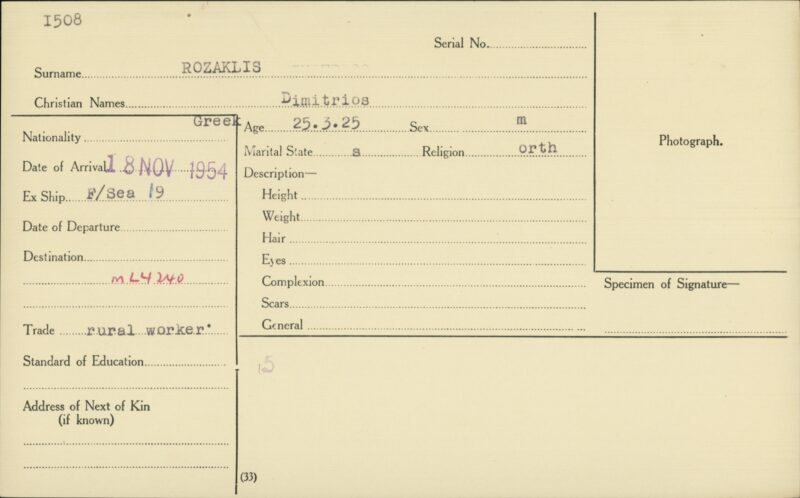 1508
Serial No.
Surname ROZAKLIS
Christian Names Dimitrios
Nationality Greek
Date of Arrival 18 NOV 1954
Ex Ship F/Sea 19
Date of Departure
Destination
ML4240
Trade rural worker.
Standard of Education
Address of Next of Kin
(if known)
Age 25.3.25 Sex m
Marital State s Religion orth
Description—
Height
Weight
Hair
Eyes
Complexion
Scars
General
Photograph.
Specimen of Signature—
5
(33)